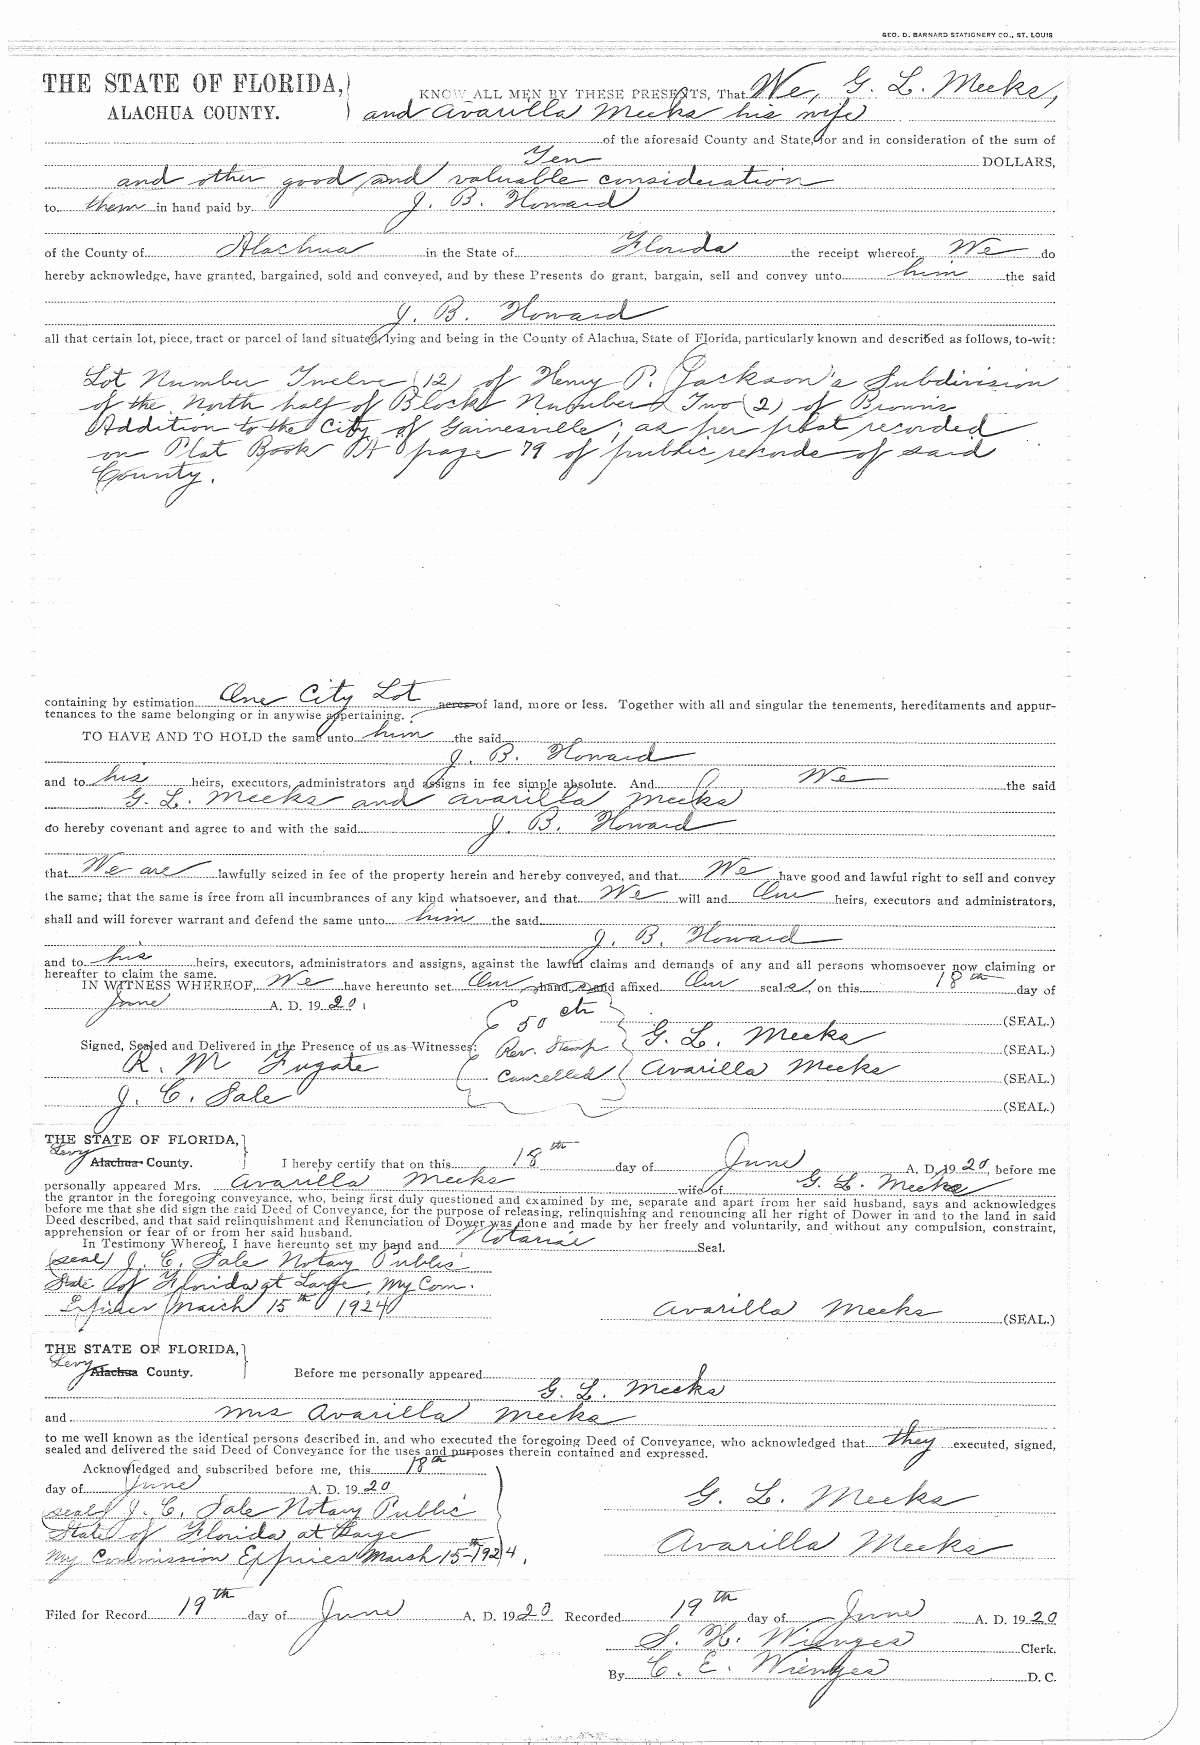 GEO. D. BARNARD STATIONERY CO., ST. LOUIS
THE STATE OF FLORIDA,
ALACHUA COUNTY.
KNOW ALL MEN BY THESE PRESENTS, That We, G. L. Meeks,
and Avarilla Meeks his wife
of the aforesaid County and State, for and in consideration of the sum of
Ten DOLLARS,
and other good and valuable consideration
to them in hand paid by J. B. Howard
of the County of Alachua in the State of Florida the receipt whereof We do
hereby acknowledge, have granted, bargained, sold and conveyed, and by these Presents do grant, bargain, sell and convey unto him the said
J. B. Howard
all that certain lot, piece, tract or parcel of land situated, lying and being in the County of Alachua, State of Florida, particularly known and described as follows, to-wit:
Lot Number Twelve (12) of Henry P. Jackson's Subdivision
of the North half of Block Number Two (2) of Browns
Addition to the City of Gainesville; as per plat recorded
on Plat Book "A" page 79 of public records of said
County.
containing by estimation One City Lot acres of land, more or less. Together with all and singular the tenements, hereditaments and appur-
tenances to the same belonging or in anywise appertaining.
TO HAVE AND TO HOLD the same unto him the said
J. B. Howard
and to his heirs, executors, administrators and assigns in fee simple absolute. And We the said
G. L. Meeks and Avarilla Meeks
do hereby covenant and agree to and with the said J. B. Howard
that We are lawfully seized in fee of the property herein and hereby conveyed, and that We have good and lawful right to sell and convey
the same; that the same is free from all incumbrances of any kind whatsoever, and that We will and Our heirs, executors and administrators,
shall and will forever warrant and defend the same unto him the said
J. B. Howard
and to his heirs, executors, administrators and assigns, against the lawful claims and demands of any and all persons whomsoever now claiming or
hereafter to claim the same.
IN WITNESS WHEREOF, We have hereunto set Our hand s and affixed Our seal s, on this 18th day of
June A. D. 1920.
50 cts (SEAL.)
Signed, Sealed and Delivered in the Presence of us as Witnesses: Rev. Stamp G. L. Meeks (SEAL.)
R. M Fugate Cancelled Avarilla Meeks (SEAL.)
J. C. Sale (SEAL.)
THE STATE OF FLORIDA,
Levy
Alachua County. I hereby certify that on this 18th day of June A. D. 1920, before me
personally appeared Mrs. Avarilla Meeks wife of G. L. Meeks
the grantor in the foregoing conveyance, who, being first duly questioned and examined by me, separate and apart from her said husband, says and acknowledges
before me that she did sign the said Deed of Conveyance, for the purpose of releasing, relinquishing and renouncing all her right of Dower in and to the land in said
Deed described, and that said relinquishment and Renunciation of Dower was done and made by her freely and voluntarily, and without any compulsion, constraint,
apprehension or fear of or from her said husband.
In Testimony Whereof, I have hereunto set my hand and Notarial Seal.
(seal) J. C. Sale Notary Public
State of Florida at Large, My Com.
Expires March 15th 1924
Avarilla Meeks (SEAL.)
THE STATE OF FLORIDA,
Levy
Alachua County. Before me personally appeared
G. L. Meeks
and Mrs Avarilla Meeks
to me well known as the identical persons described in, and who executed the foregoing Deed of Conveyance, who acknowledged that they executed, signed,
sealed and delivered the said Deed of Conveyance for the uses and purposes therein contained and expressed.
Acknowledged and subscribed before me, this 18th
day of June A. D. 1920
(seal) J. C. Sale Notary Public G. L. Meeks
State of Florida at Large
My Commission Expires March 15th 1924. Avarilla Meeks
Filed for Record 19th day of June A. D. 1920 Recorded 19th day of June A. D. 1920
S. H. Wienges Clerk.
By C. E. Wienges D. C.